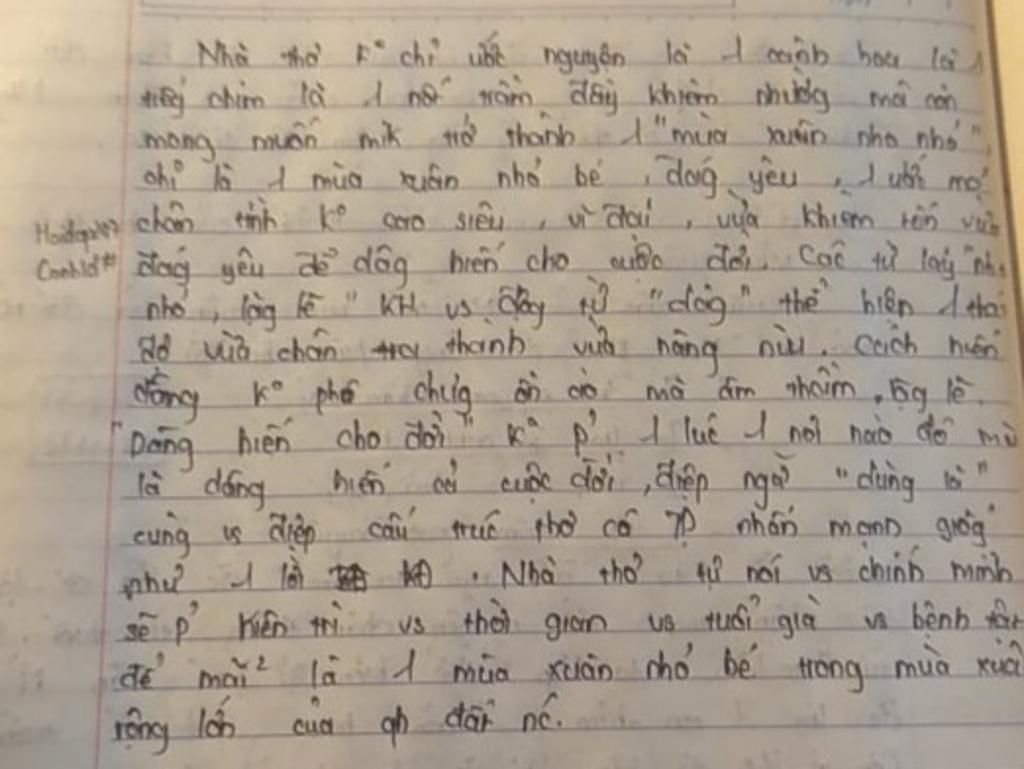 Nhà thơ k° chỉ ước nguyện là 1 cành hoa là 1
tiếg chim là 1 nốt trầm đầy khiêm nhường mà còn
mong muốn mik trở thành 1 "mùa xuân nho nhỏ",
chỉ là 1 mùa xuân nhỏ bé, đág yêu, 1 ước mơ
chân tình k° cao siêu, vĩ đại, vừa khiêm tốn vừa
đág yêu để dâg hiến cho cuộc đời. Các từ láy "nho
nhỏ, lặg lẽ" KH vs độg từ "dâg" thể hiện 1 thái
độ vừa chân thành vừa nâng niu. Cách hiến
dâng k° phô chưig ồn ào mà âm thầm, lặg lẽ.
"Dâng hiến cho đời" k° p' 1 lúc 1 nơi nào đó mà
là dâng hiến cả cuộc đời, điệp ngữ "dùng là"
cùng vs điệp cấu trúc thơ có TD nhấn mạnh giốg
như 1 lời . Nhà thơ tự nói vs chính mình
sẽ p' kiên trì vs thời gian vs tuổi già vs bệnh tật
để mãi² là 1 mùa xuân nhỏ bé trong mùa xuân
rộng lớn của qh đất nc.